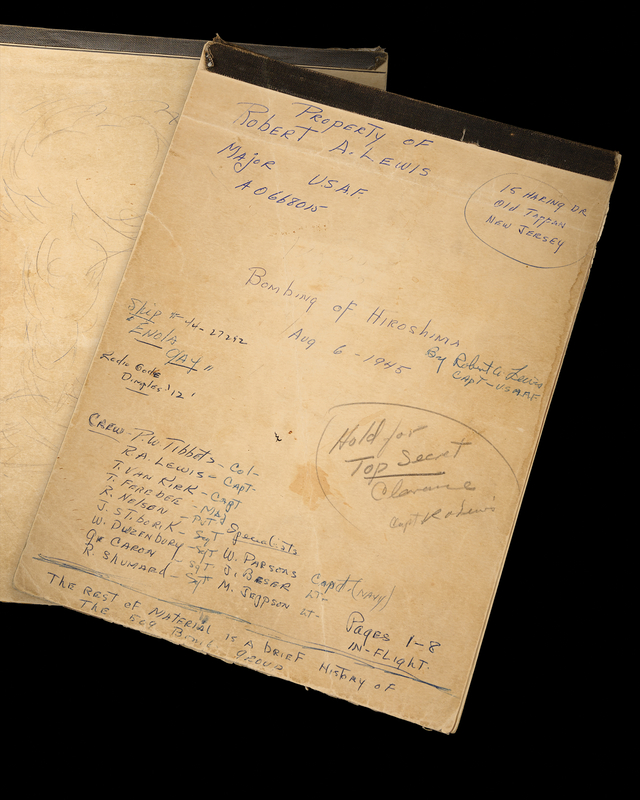 PROPERTY OF
ROBERT A. LEWIS
MAJOR USAF
AO668015
15 HARING DR
Old Tappan
NEW JERSEY
BOMBING OF HIROSHIMA
Aug 6-1945
By Robert A. Lewis
CAPT-USAAF
Ship # 44-27292
"ENOLA
GAY"
Radio Code
Dimples '12'
Hold for
Top Secret
Clearance
Capt R A Lewis
CREW-P.W. Tibbets-Col-
R.A. LEWIS-CAPT-
T. VAN KIRK-CAPT
T. FEREBEE-MAJ
R. NELSON-PVT
J. STIBORIK-SgT
W. DUZENBURY-SgT
G. CARON-SgT
R. SHUMARD-SgT
Specialists
W. PARSONS Capt (NAVY)
J. BESER LT-
M. JEPPSON LT-
Pages 1-8
IN-FLIGHT.
THE REST OF MATERIAL IS A BRIEF HISTORY OF
THE 509 BOMB GROUP